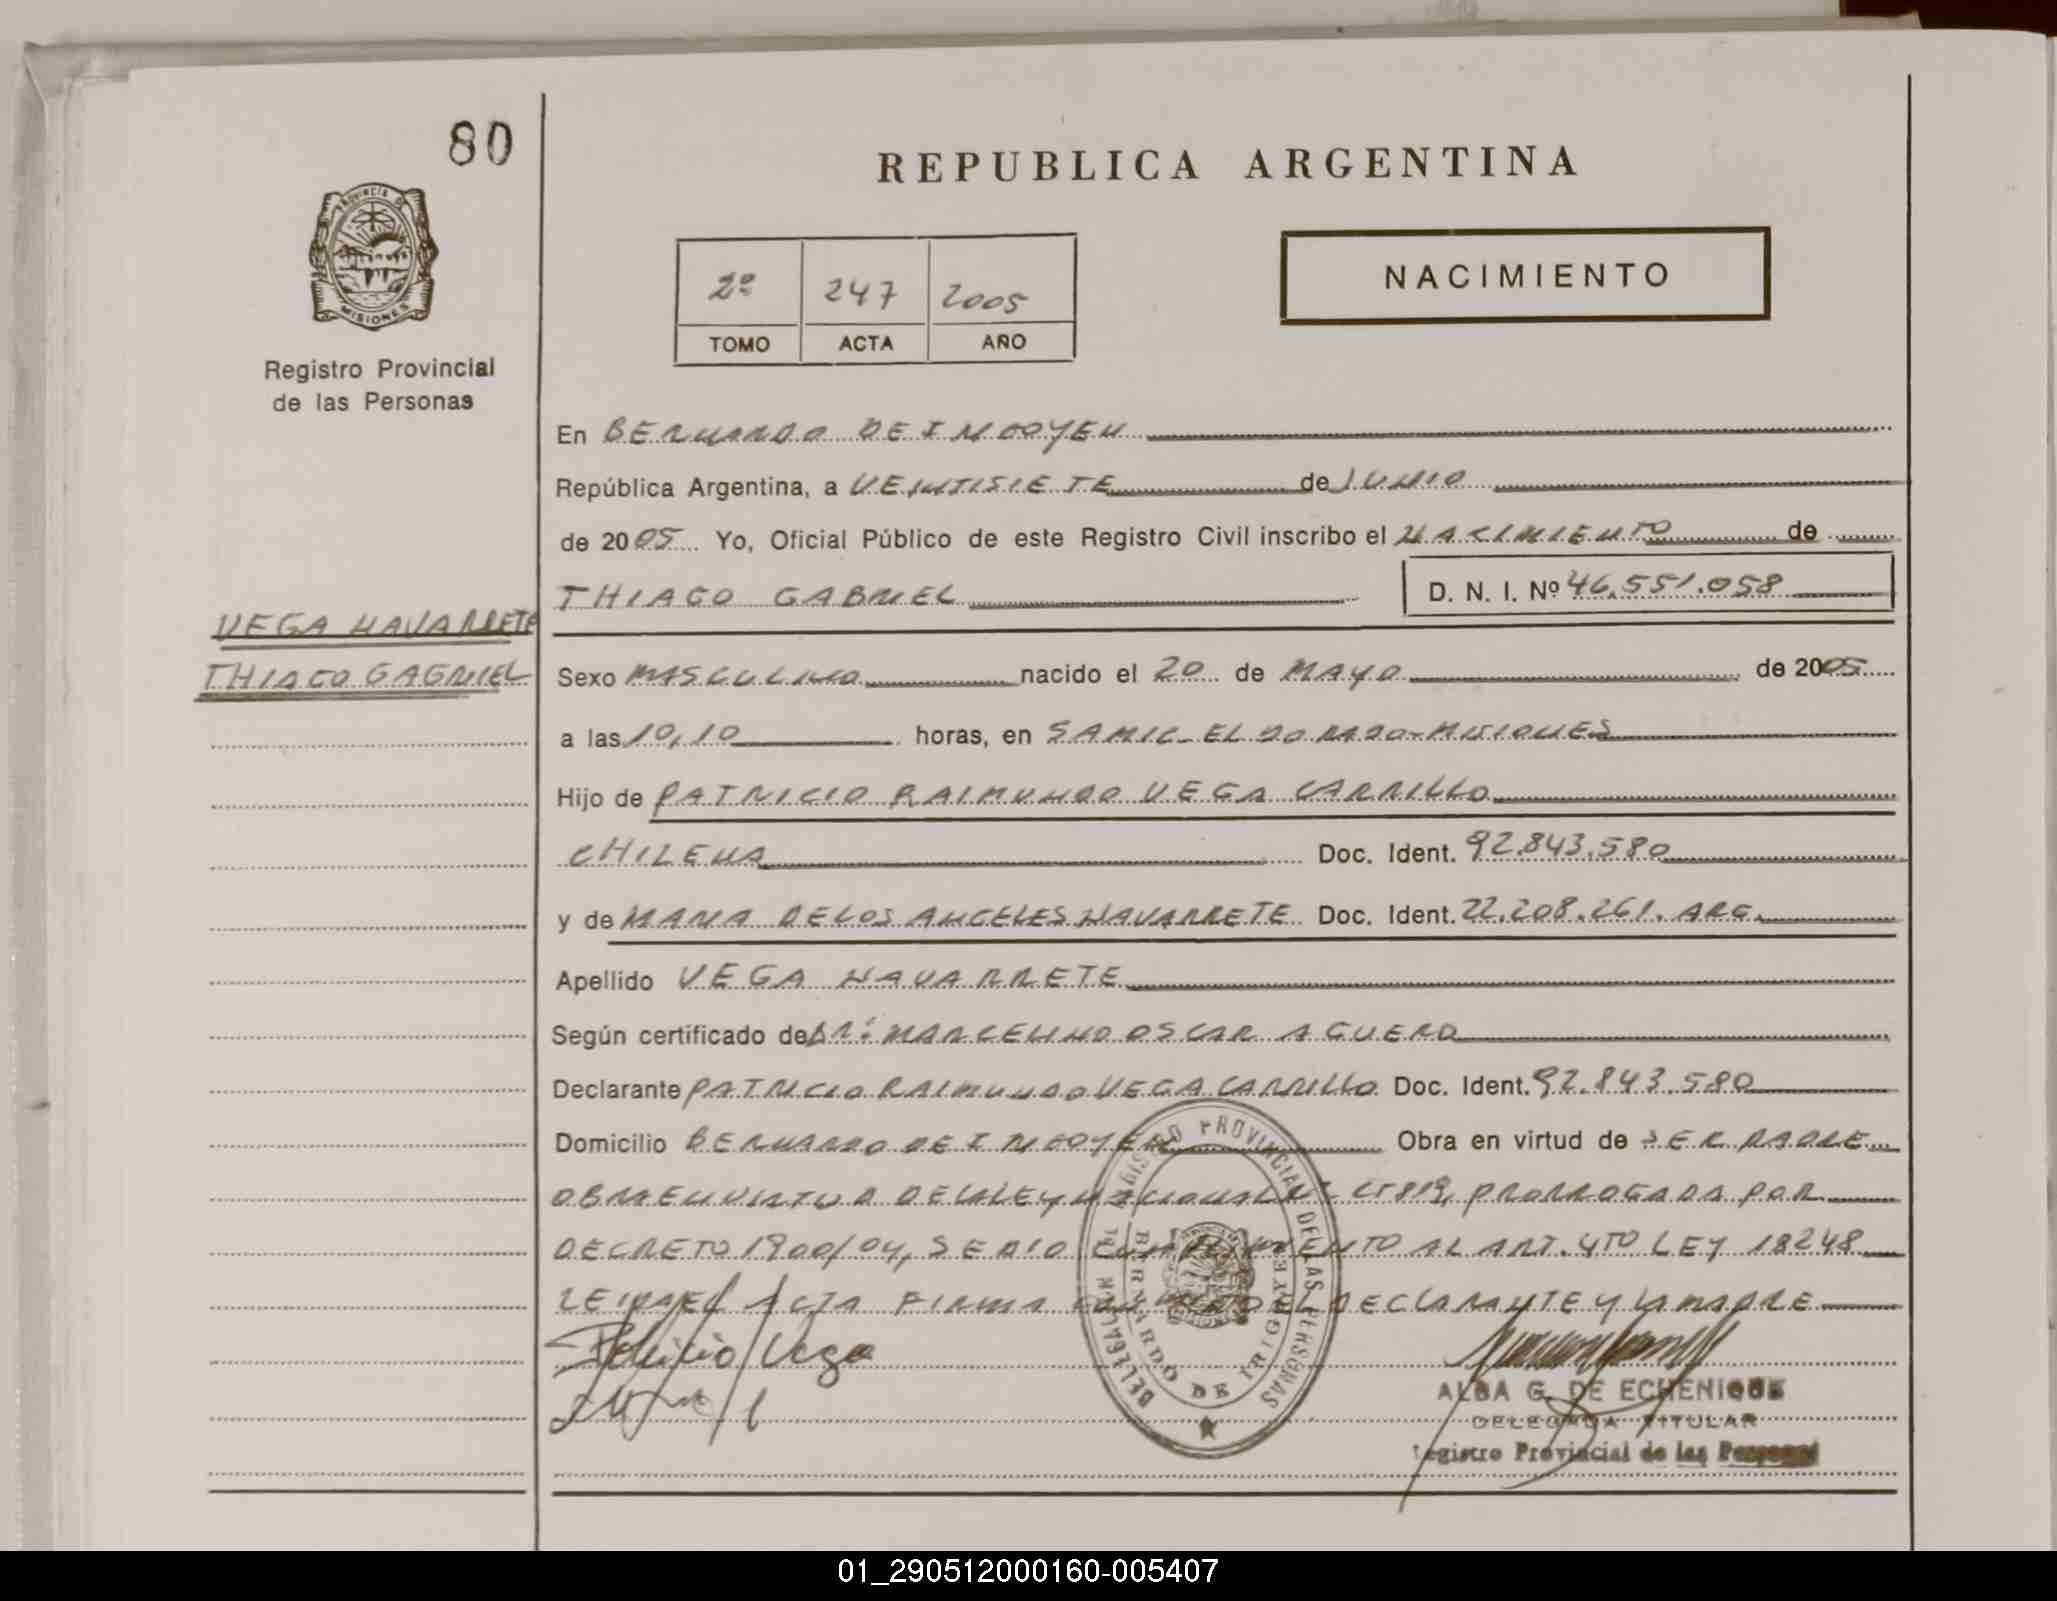 80
PROVINCIA DE
MISIONES
Registro Provincial
de las Personas
REPUBLICA ARGENTINA
NACIMIENTO
2º 247 2005
TOMO ACTA AÑO
En BERNARDO DE IRIGOYEN
República Argentina, a VEINTISIETE de JUNIO
de 2005 Yo, Oficial Público de este Registro Civil inscribo el NACIMIENTO de
THIAGO GABRIEL D. N. I. Nº 46.551.058
VEGA NAVARRETE
THIAGO GABRIEL
Sexo MASCULINO nacido el 20 de MAYO de 2005
a las 10,10 horas, en SAMIC - ELDORADO - MISIONES
Hijo de PATRICIO RAIMUNDO VEGA CARRILLO
CHILENA Doc. Ident. 92.843.580
y de MARIA DE LOS ANGELES NAVARRETE Doc. Ident. 22.208.261. ARG.
Apellido VEGA NAVARRETE
Según certificado de DR: MARCELINO OSCAR AGUERO
Declarante PATRICIO RAIMUNDO VEGA CARRILLO Doc. Ident. 92.843.580
Domicilio BERNARDO DE IRIGOYEN Obra en virtud de SER PADRE
OBRA EN VIRTUD DE LA LEY NACIONAL Nº 25819, PRORROGADA POR
DECRETO 1900/04, SE DIO CUMPLIMIENTO AL ART. 4TO LEY 18248
LEIDA EL ACTA FIRMA CONMIGO EL DECLARANTE Y LA MADRE
Patricio Vega
REGISTRO PROVINCIAL DE LAS PERSONAS
DELEGACION
BERNARDO DE IRIGOYEN
ALBA G. DE ECHENIQUE
DELEGADA TITULAR
Registro Provincial de las Personas
01_290512000160-005407